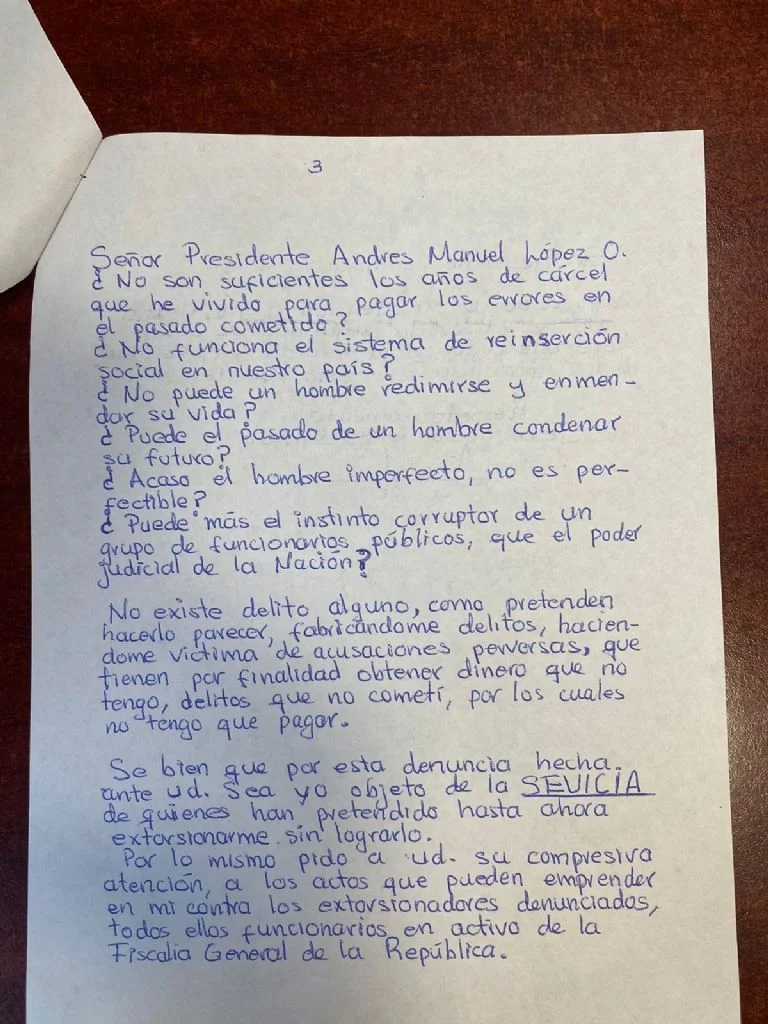 3
Señor Presidente Andres Manuel López O.
¿ No son suficientes los años de cárcel
que he vivido para pagar los errores en
el pasado cometido?
¿ No funciona el sistema de reinserción
social en nuestro país?
¿ No puede un hombre redimirse y enmen-
dar su vida?
¿ Puede el pasado de un hombre condenar
su futuro?
¿ Acaso el hombre imperfecto, no es per-
fectible?
¿ Puede más el instinto corruptor de un
grupo de funcionarios públicos, que el poder
judicial de la Nación?
No existe delito alguno, como pretenden
hacerlo parecer, fabricándome delitos, hacien-
dome víctima de acusaciones perversas, que
tienen por finalidad obtener dinero que no
tengo, delitos que no cometí, por los cuales
no tengo que pagar.
Se bien que por esta denuncia hecha.
ante ud. Sea yo objeto de la SEVICIA
de quienes han pretendido hasta ahora
extorsionarme sin lograrlo.
Por lo mismo pido a ud. su compresiva
atención, a los actos que pueden emprender
en mi contra los extorsionadores denunciados,
todos ellos funcionarios en activo de la
Fiscalia General de la República.